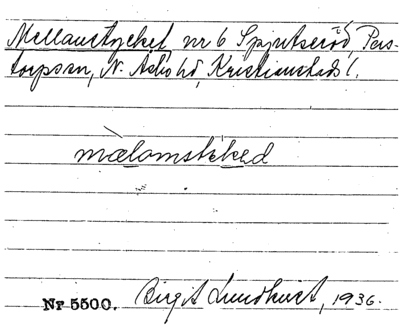 Mellanstycket nr 6 Spjutseröd, Pers-
torps sn, N. Åsbo hd, Kristianstads l.
mælamstɛked
Nr 5500. Birgit Lundkvist, 1936.